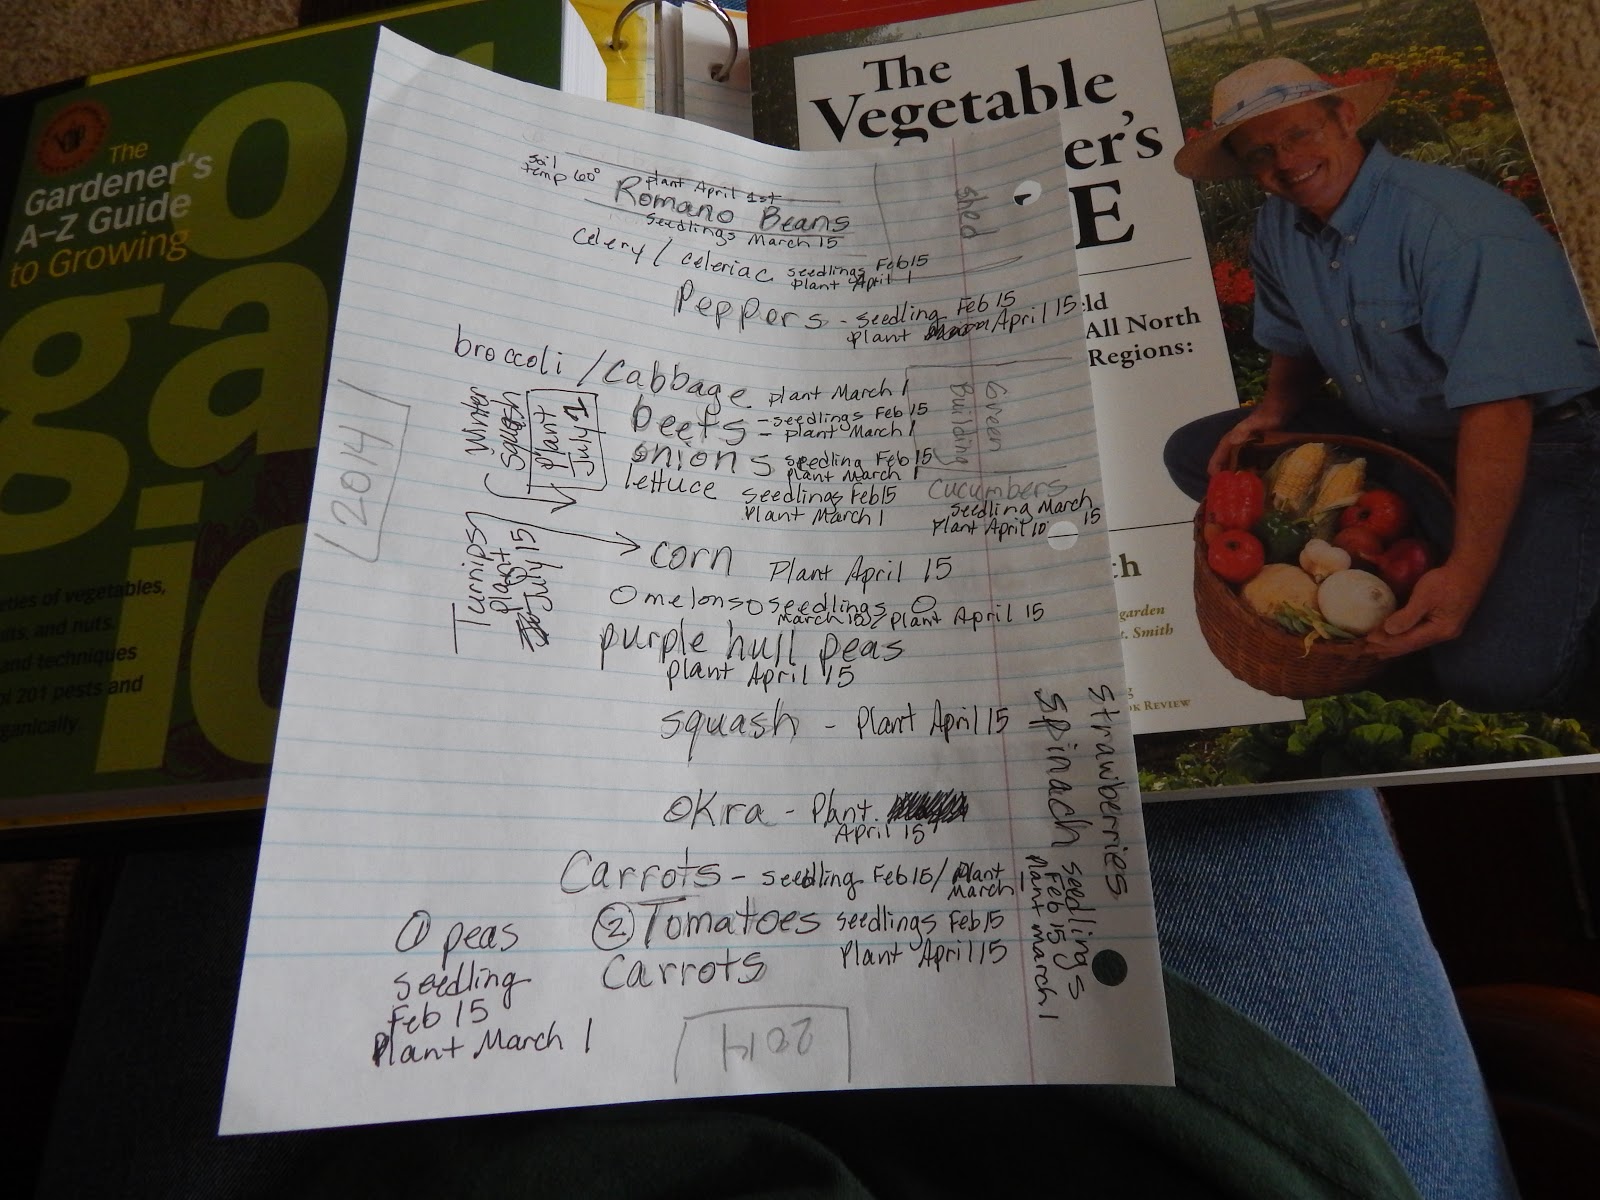 The
Gardener's
A–Z Guide
to Growing
eties of vegetables,
and nuts.
and techniques
201 pests and
ganically
The
Vegetable
er's
E
ld
All North
Regions:
th
garden
t. Smith
OK REVIEW
soil
temp 60°
plant April 1st
Romano Beans
Seedlings March 15
shed
Celery / Celeriac seedlings Feb 15
plant April 1
Peppers - seedling Feb 15
plant April 15
broccoli / Cabbage plant March 1
beets - seedlings Feb 15
- plant March 1
onions seedling Feb 15
plant March 1
lettuce seedlings Feb 15
Plant March 1
Green
Building
cucumbers
seedling March 15
Plant April 10
Winter
Squash
Plant
July 1
Turnips
plant
July 15
2014
corn Plant April 15
melons seedlings
March 15 / plant April 15
purple hull peas
plant April 15
squash - Plant April 15
okra - Plant
April 15
Carrots - seedling Feb 15 / Plant
March 1
① peas
seedling
Feb 15
Plant March 1
② Tomatoes seedlings Feb 15
Plant April 15
Carrots
strawberries
Spinach seedlings
Feb 15
plant march 1
2014